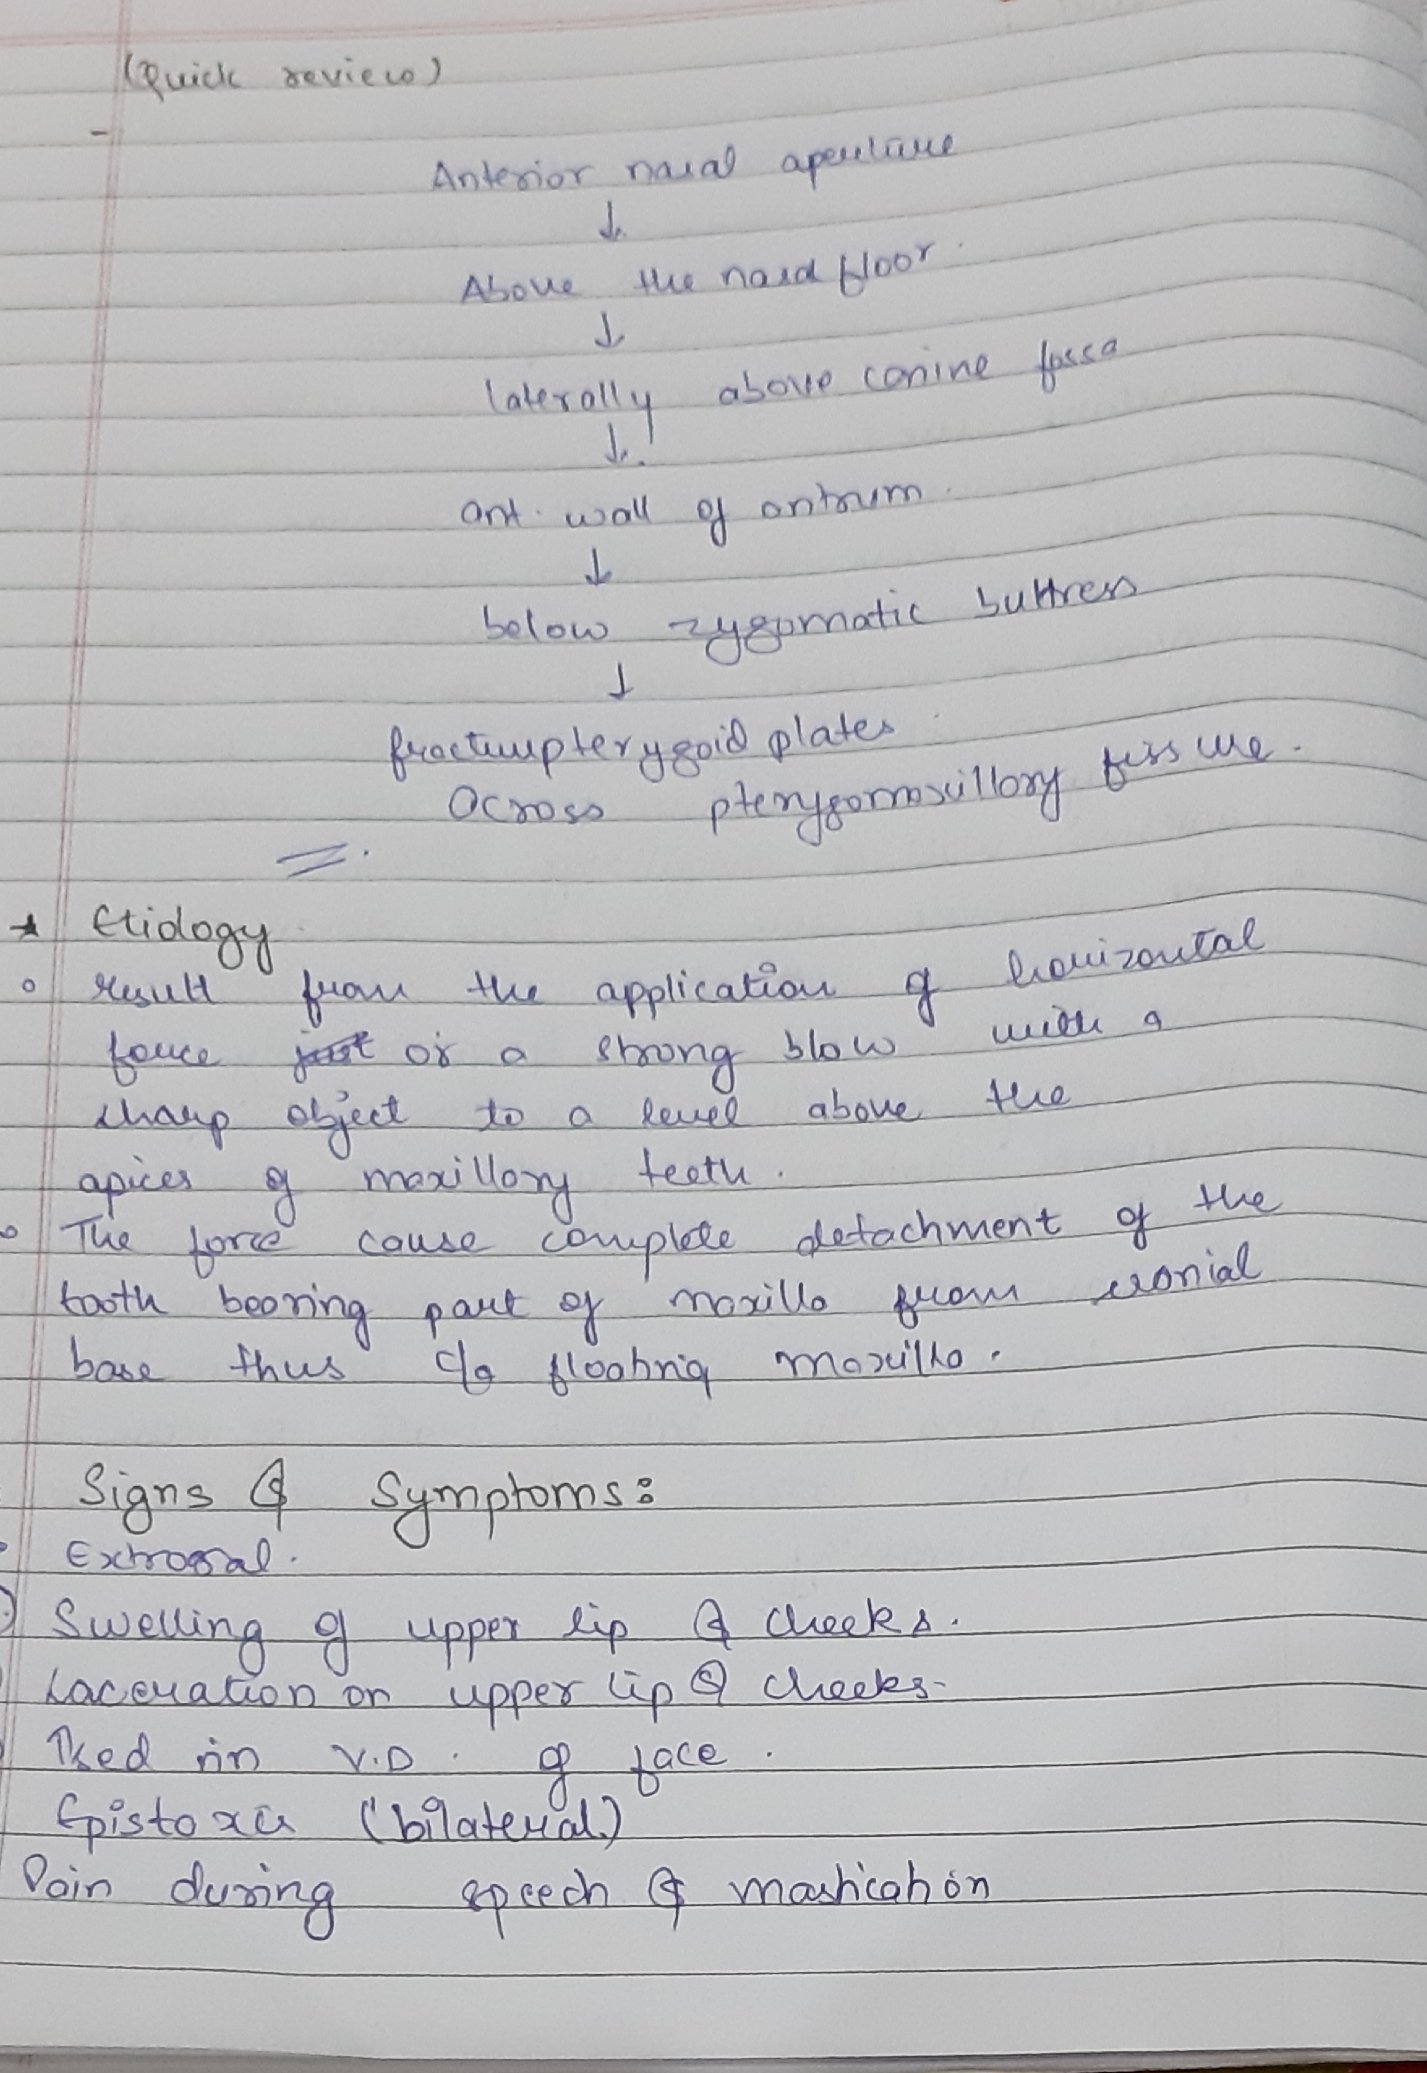 (Quick review)
-
Anterior nasal aperture
↓
Above the nasal floor.
↓
laterally above canine fossa
↓
ant. wall of antrum.
↓
below zygomatic buttress
↓
fracture pterygoid plates
Across pterygomaxillary fissure.
★ Etiology
o result from the application of horizontal
force or a strong blow with a
sharp object to a level above the
apices of maxillary teeth.
o The force cause complete detachment of the
tooth bearing part of maxilla from cranial
base thus c/a floating maxilla.
Signs & Symptoms:
Extraoral.
Swelling of upper lip & cheeks.
Laceration on upper lip & cheeks-
↑sed in V.D. of face.
Epistoxis (bilateral)
Pain during speech & mastication